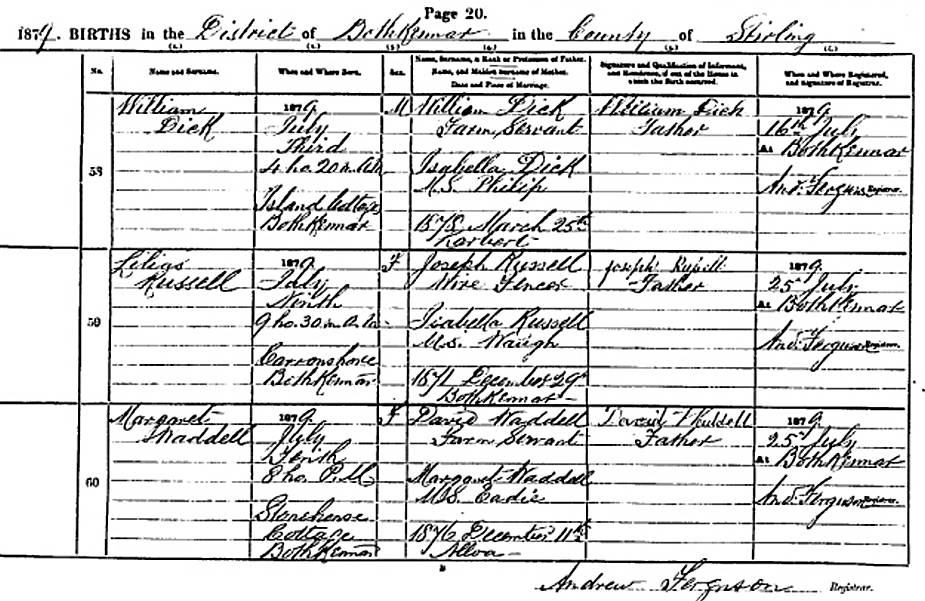 Page 20.
1879. BIRTHS in the District of Bothkennar in the County of Stirling
(1.) (2.) (3.) (4.) (5.) (6.)
No. Name and Surname. When and Where Born. Sex. Name, Surname, & Rank or Profession of Father. Name, and Maiden Surname of Mother. Date and Place of Marriage. Signature and Qualification of Informant, and Residence, if out of the House in which the Birth occurred. When and Where Registered, and Signature of Registrar.
William 1879. M William Dick William Dick 1879.
Dick July Farm Servant Father 16th July
Third At Bothkennar
58 4 ho. 20 m. A.M. Isabella Dick
M.S. Philip And. Ferguson Registrar.
Island Cottage
Bothkennar 1878 March 25th
Larbert
Lilias 1879. F Joseph Russell Joseph Russell 1879.
Russell July Wire Fencer Father 25th July
Ninth At Bothkennar
59 9 ho. 30 m. A.M. Isabella Russell
M.S. Waugh And. Ferguson Registrar.
Carronshore
Bothkennar 1871 December 29th
Bothkennar
Margaret 1879. F David Waddell David Waddell 1879.
Waddell July Farm Servant Father 25th July
Tenth At Bothkennar
60 8 ho. P.M. Margaret Waddell
M.S. Eadie And. Ferguson Registrar.
Stonehouse
Cottage 1876 December 11th
Bothkennar Alloa
Andrew Ferguson Registrar.